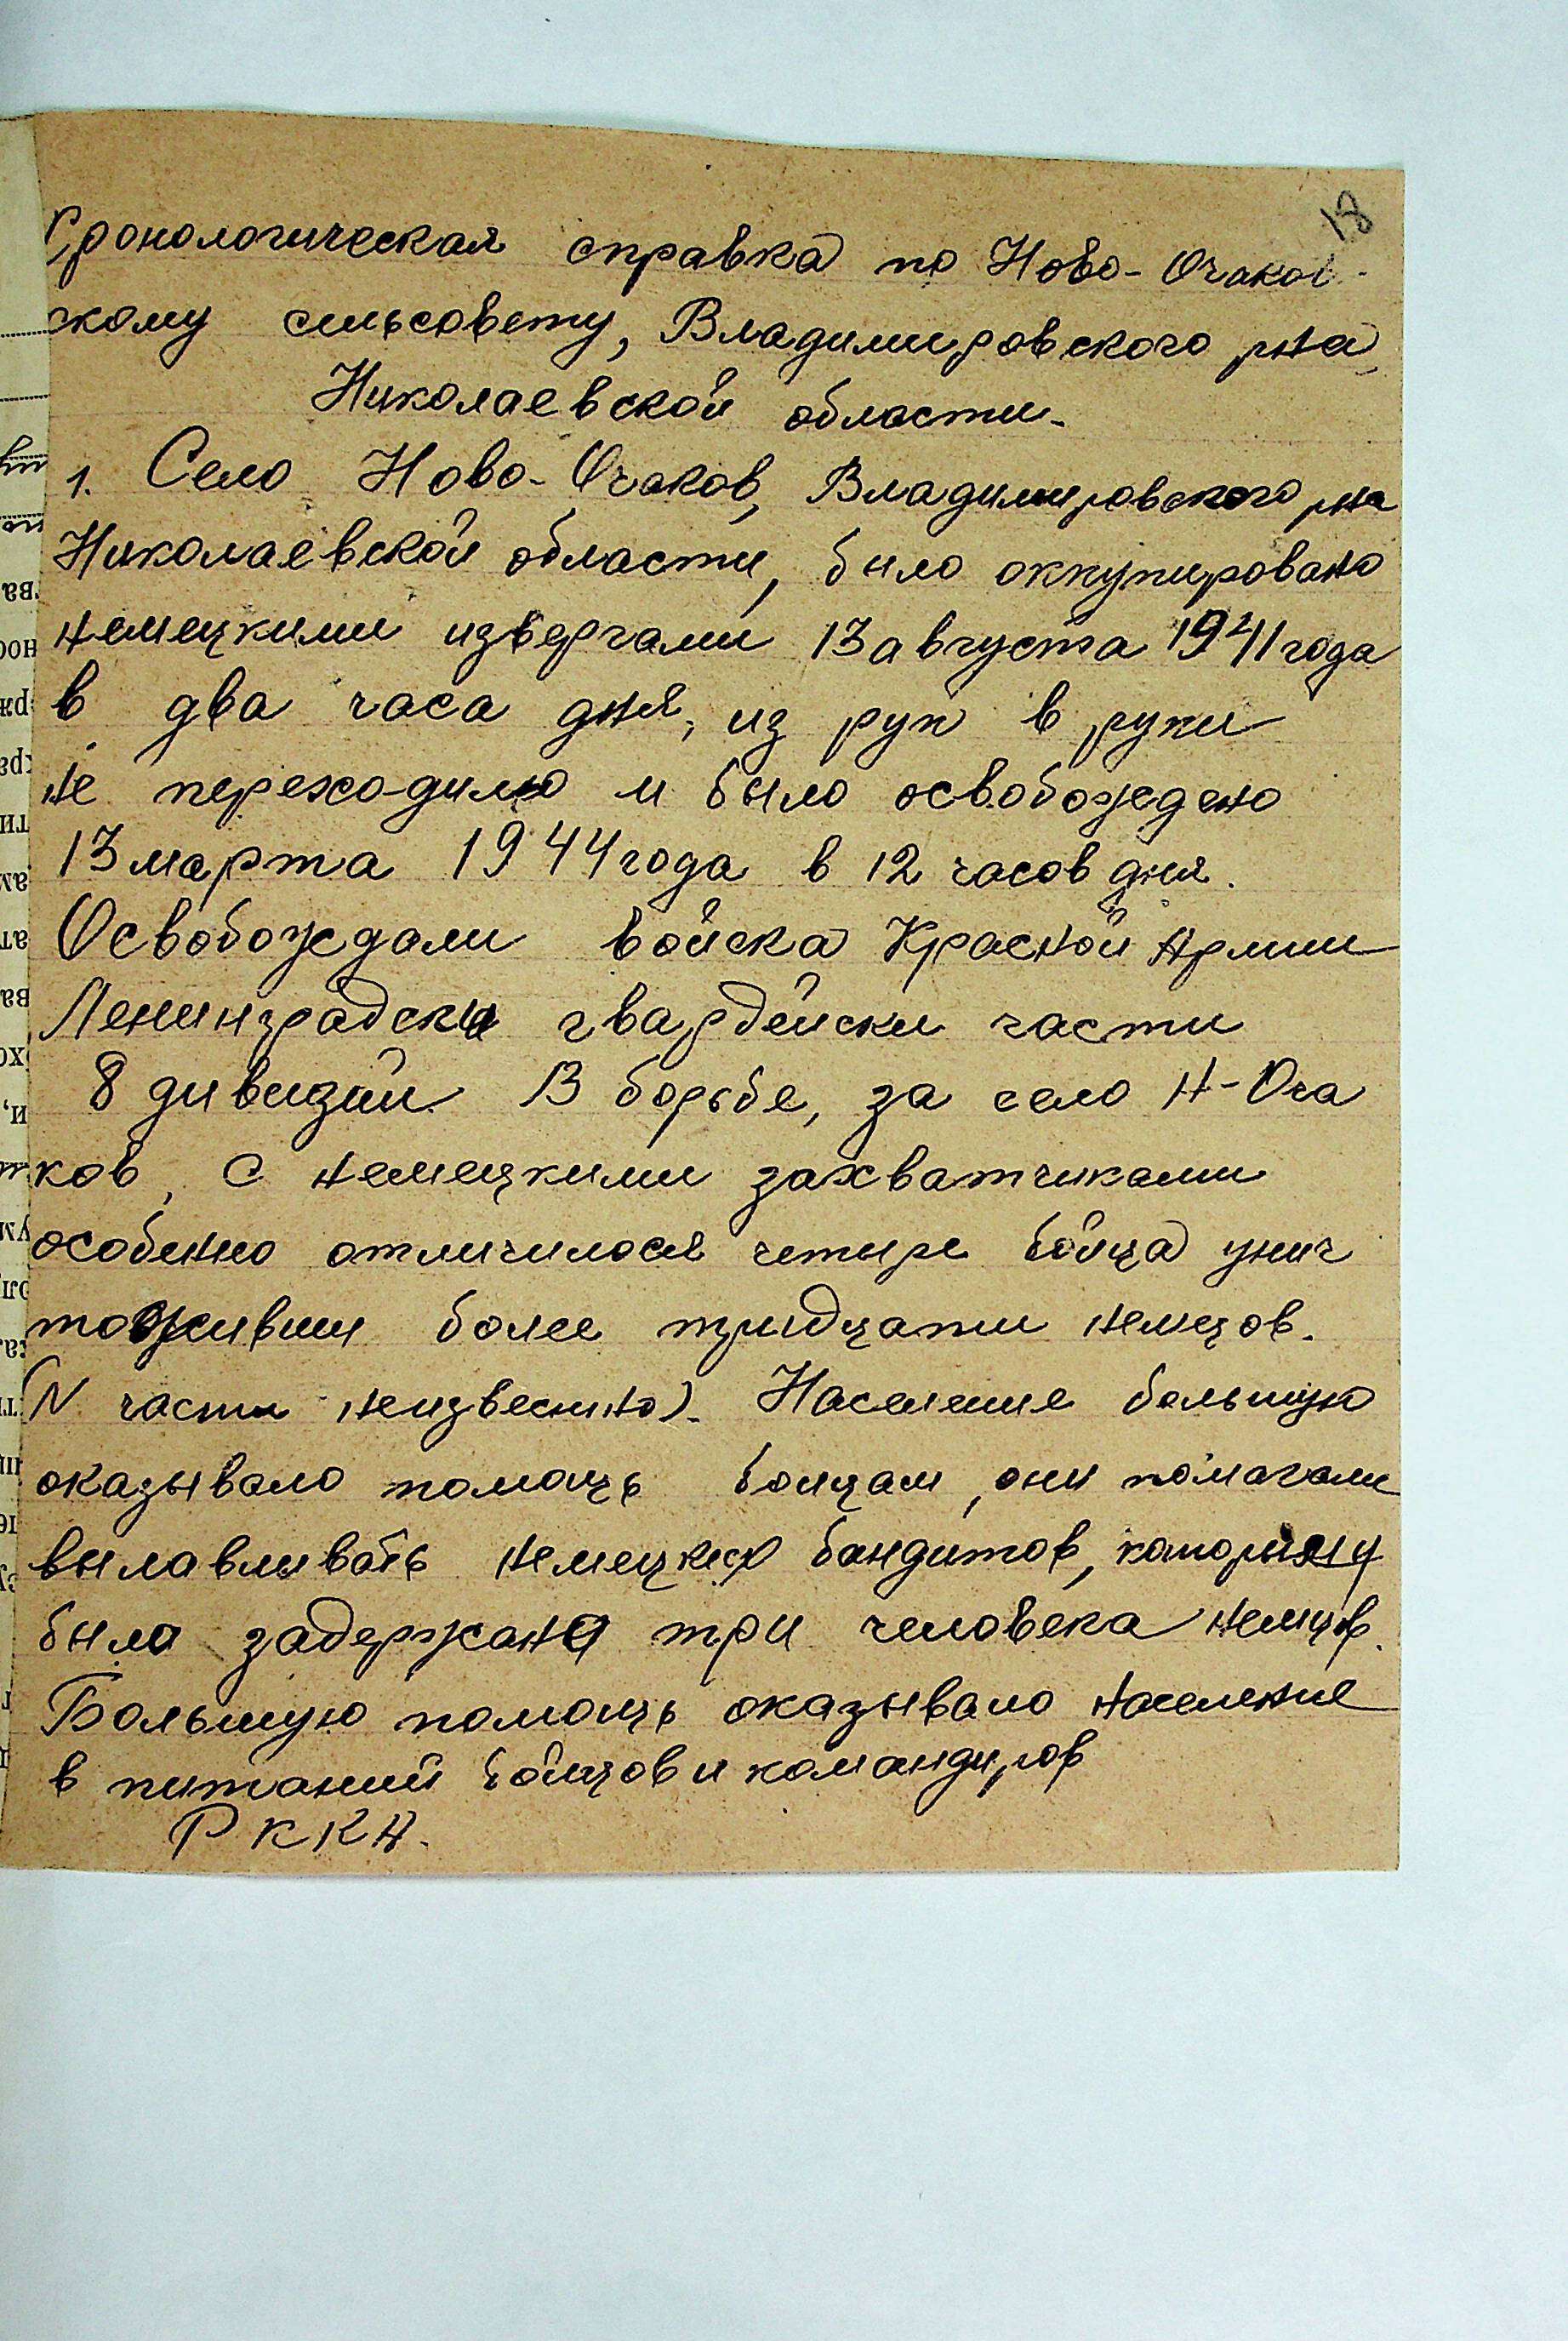 18
Хронологическая справка по Ново-Очаков-
скому сельсовету, Владимировского рна,
Николаевской области.
1. Село Ново-Очаков, Владимировского рна
Николаевской области, было оккупировано
немецкими извергами 13 августа 1941 года
в два часа дня, из рук в руки
не переходило и было освобождено
13 марта 1944 года в 12 часов дня.
Освобождали войска Красной Армии
Ленинградски гвардейски части
8 дивизии. В борьбе, за село Н-Оча
ков, с немецкими захватчиками
особенно отличилося четыре бойца унич
тоживши более тридцати немецов.
(N части неизвестно). Население большую
оказывало помощь бойцам, они помагали
вылавливать немецких бандитов,
было задержано три человека немцев.
Большую помощь оказывало население
в питании бойцов и командиров
РККА.